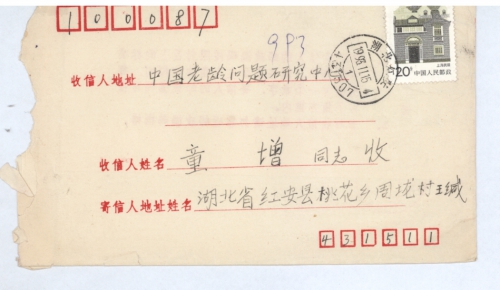 100087
9P3
收信人地址 中国老龄问题研究中心
20分 中国人民邮政
1995.11.15
收信人姓名 童增 同志 收
寄信人地址姓名 湖北省红安县桃花乡周垅村王缄
431511